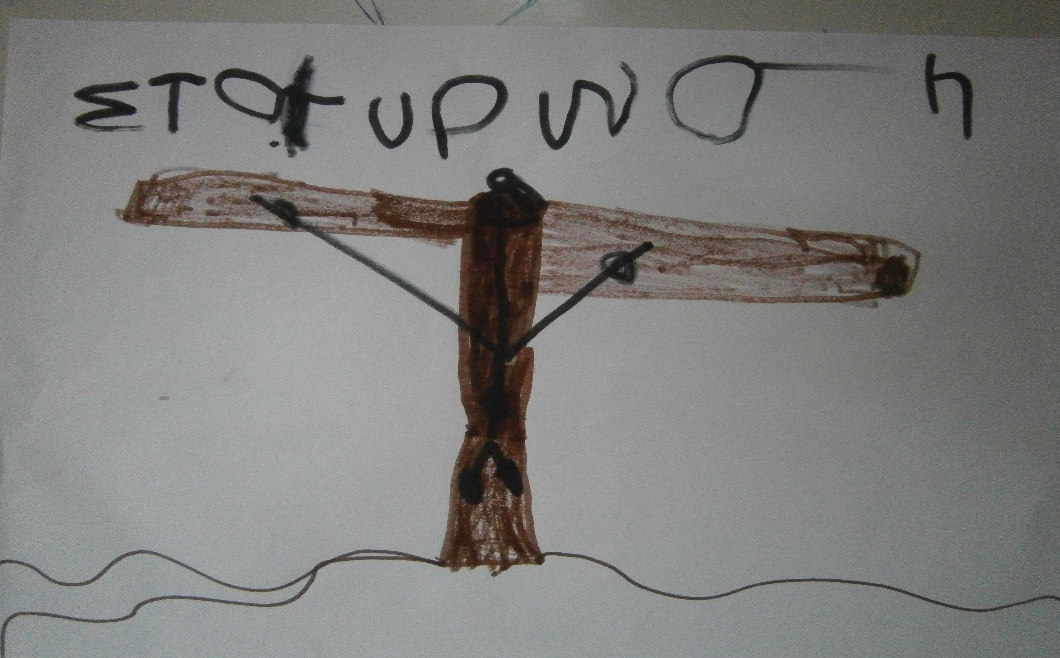 ΣΤαυρωση